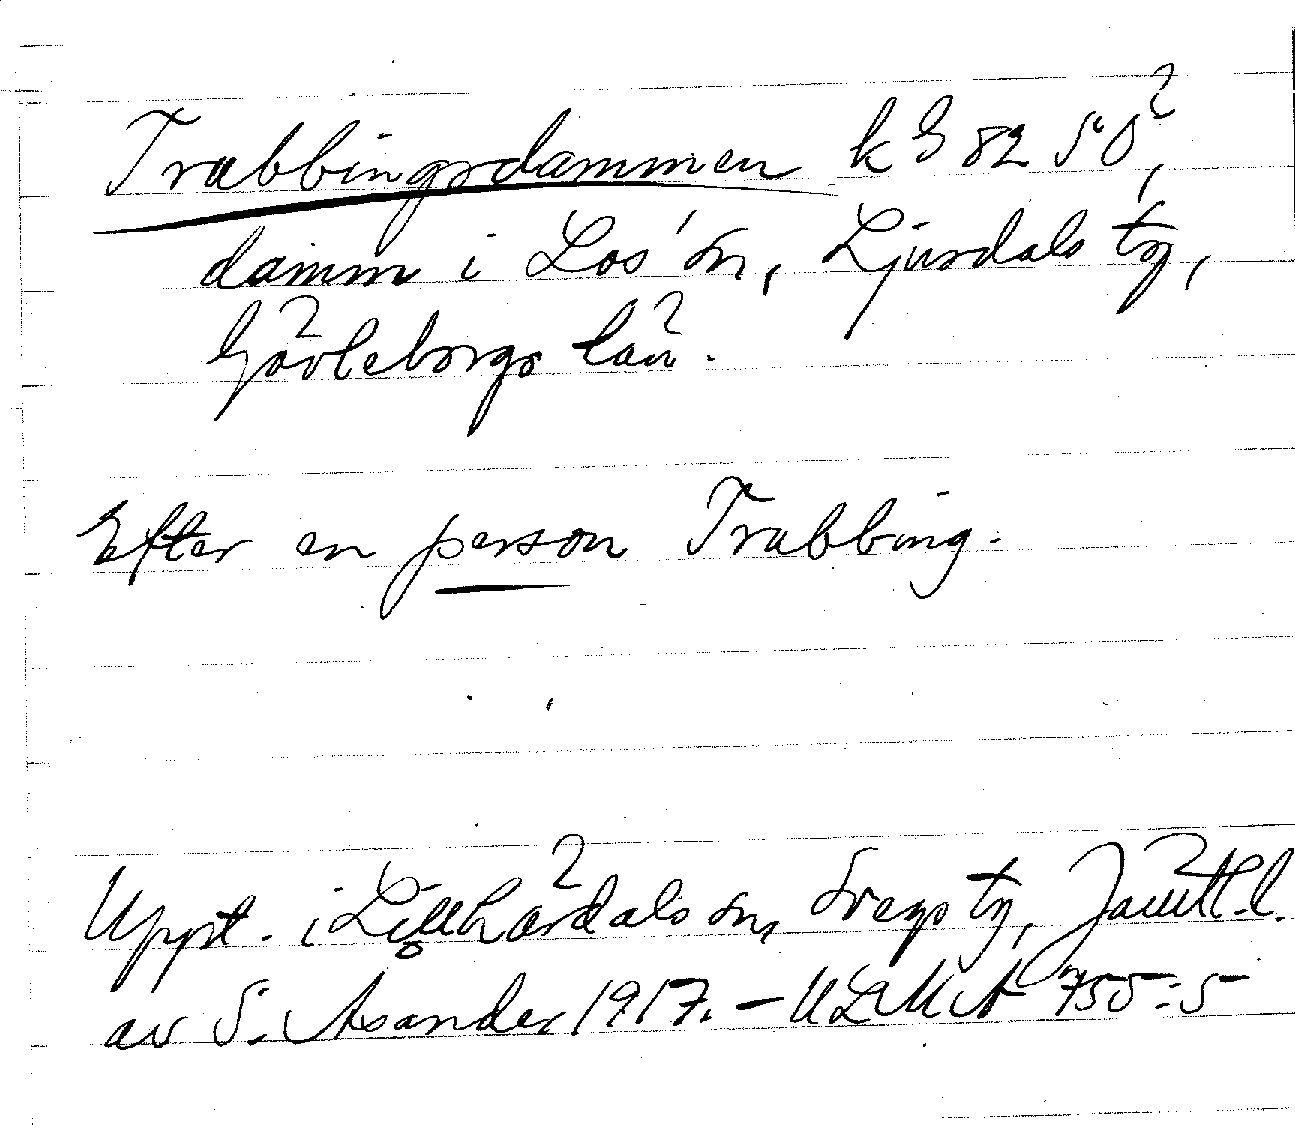 Trabbingsdammen k G 82 SÖ,
damm i Los' sn, Ljusdals tg,
Gävleborgs län.
Efter en person Trabbing.
Uppt. i Lillhärdals sn, Svegs tg, Jämtl. l.
av S. Asander 1917. – ULMA 755:5